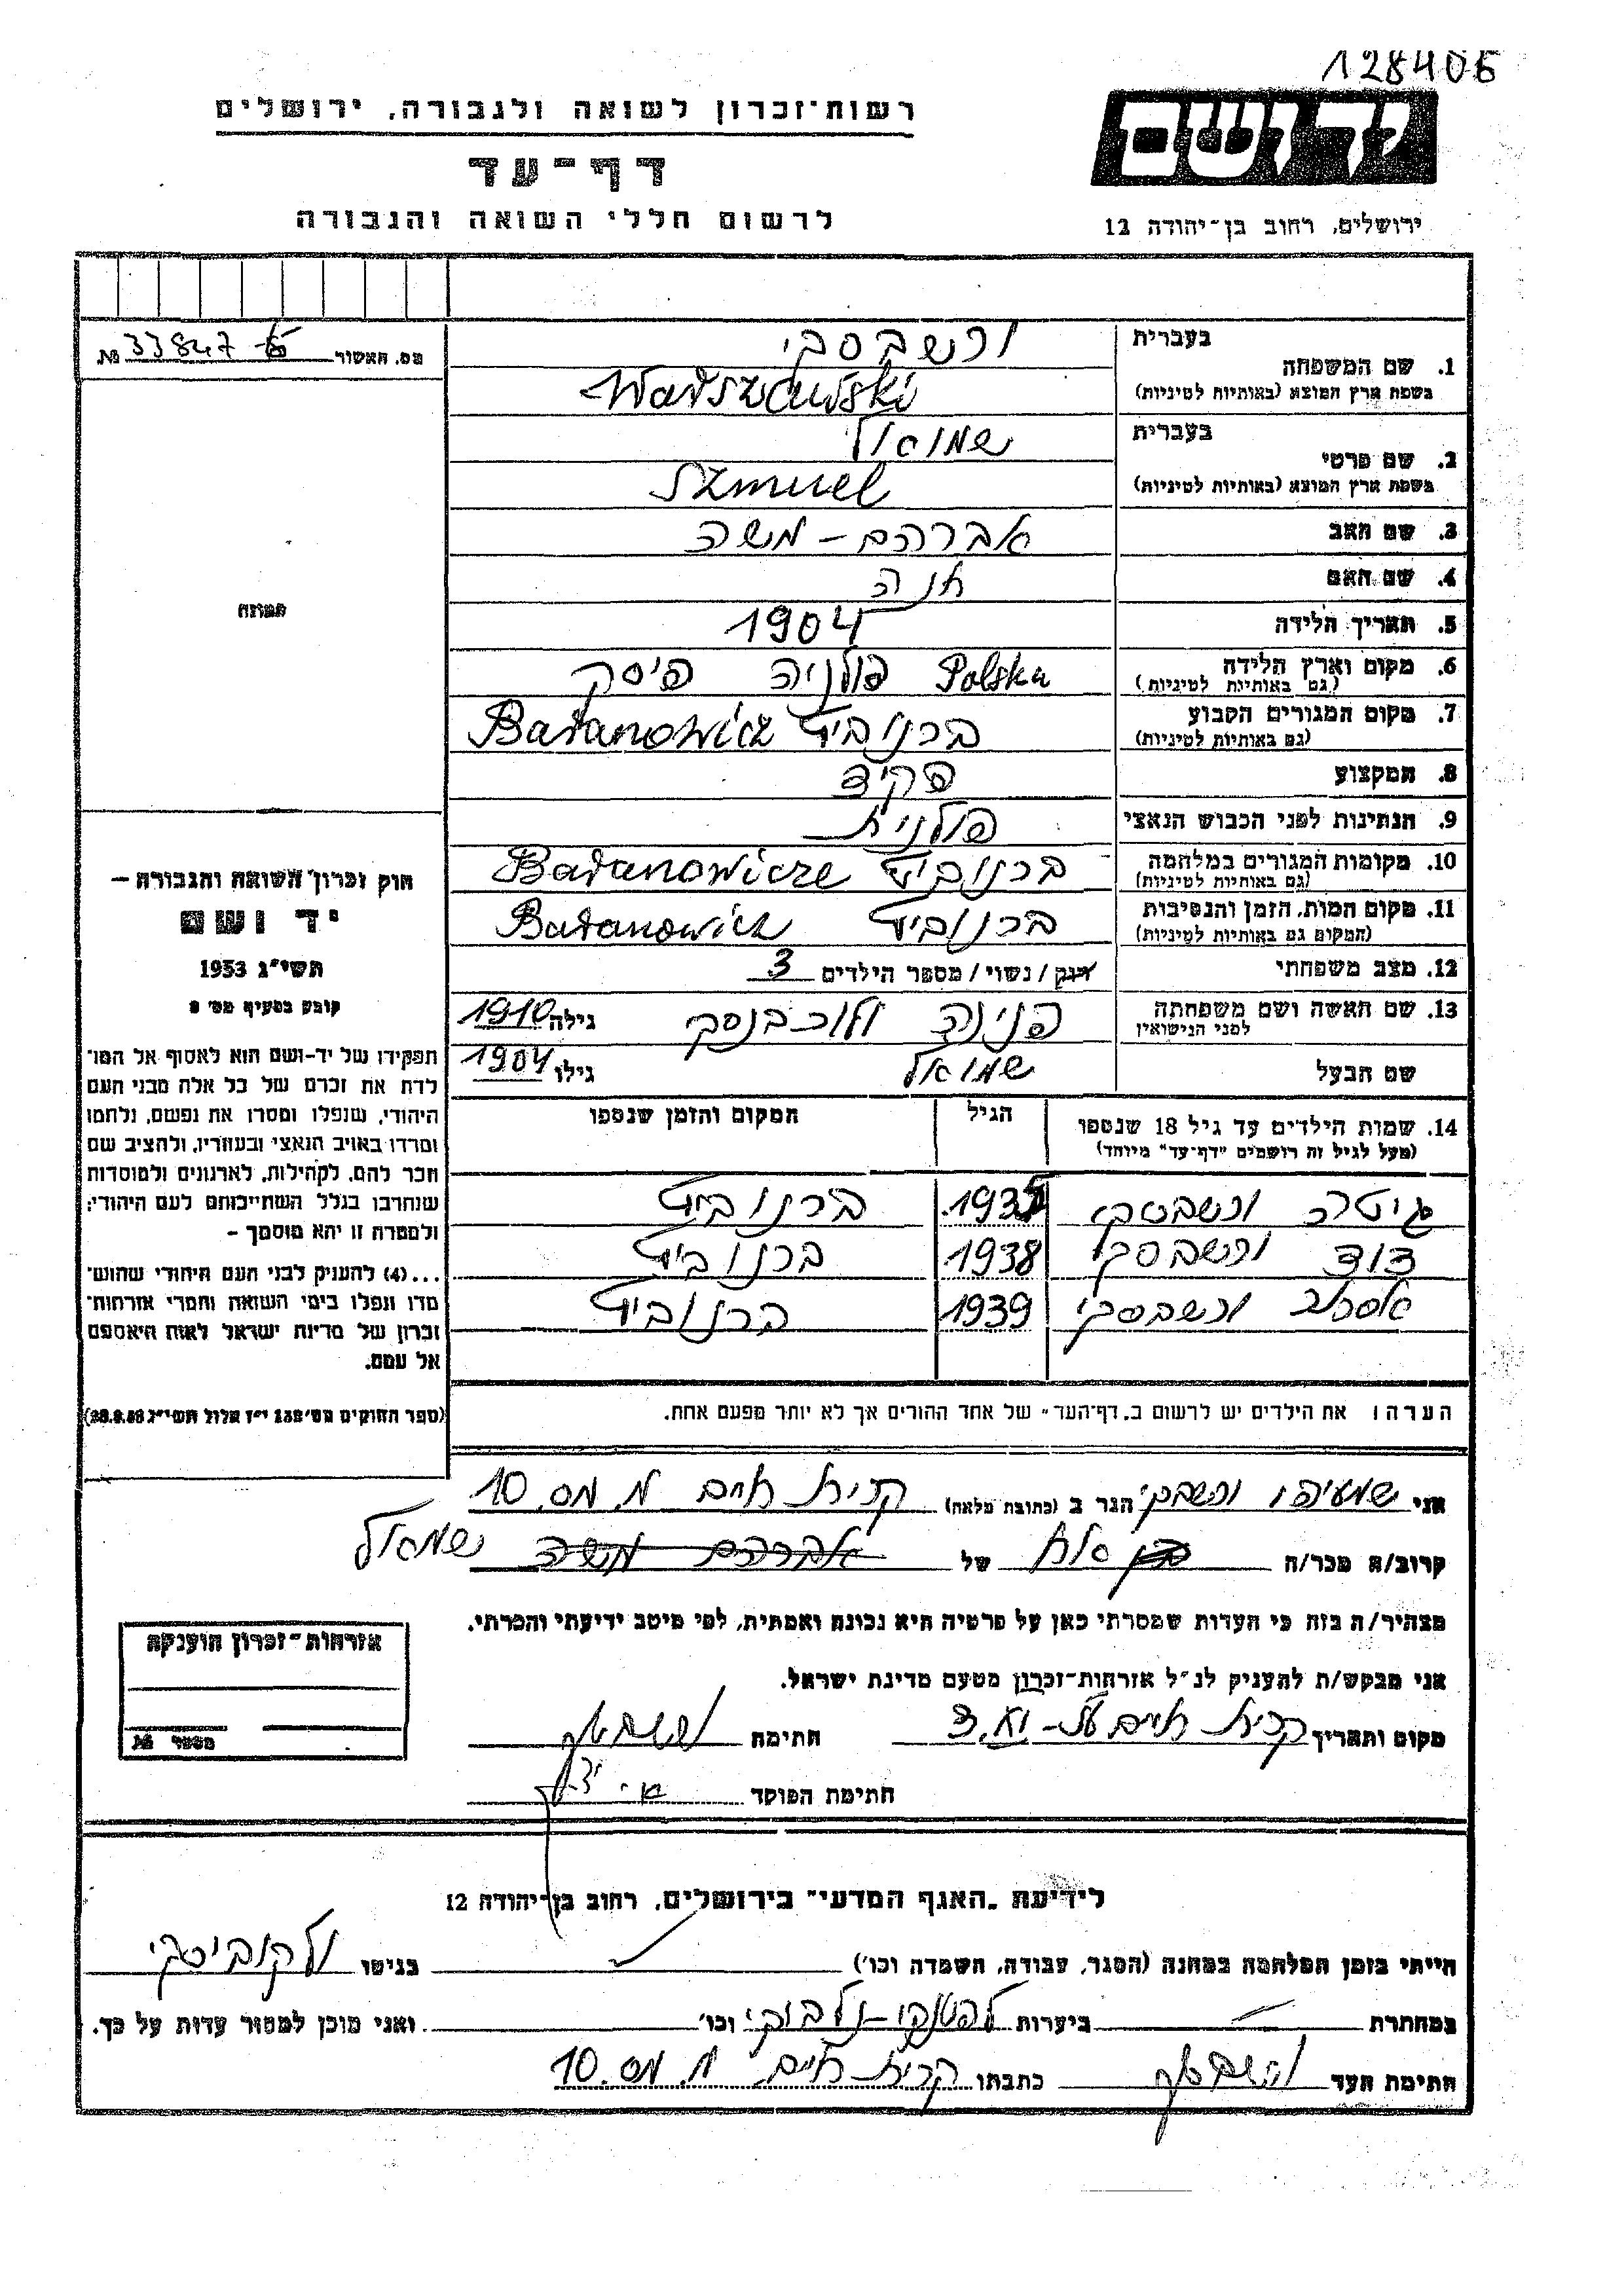 128406
רשות-זכרון לשואה ולגבורה, ירושלים
יד ושם
דף-עד
לרשום חללי השואה והגבורה
ירושלים, רחוב בן-יהודה 12
מס. האשור 33847 №
תמונה
חוק זכרון השואה והגבורה –
יד ושם
תשי״ג 1953
קובע בסעיף מס׳ 2
תפקידו של יד-ושם הוא לאסוף אל המו־
לדת את זכרם של כל אלה מבני העם
היהודי, שנפלו ומסרו את נפשם, נלחמו
ומרדו באויב הנאצי ובעוזריו, ולהציב שם
וזכר להם, לקהילות, לארגונים ולמוסדות
שנחרבו בגלל השתייכותם לעם היהודי;
ולמטרה זו יהא מוסמך –
...(4) להעניק לבני העם היהודי שהוש־
מדו ונפלו בימי השואה והמרי אזרחות־
זכרון של מדינת ישראל לאות היאספם
אל עמם.
(ספר החוקים מס׳ 132 י״ז אלול תשי״ג 28.8.53)
1. שם המשפחה בעברית ורשבסקי
בשפת ארץ המוצא (באותיות לטיניות) Warszawski
2. שם פרטי בעברית שמואל
בשפת ארץ המוצא (באותיות לטיניות) Szmuel
3. שם האב אברהם – משה
4. שם האם חנה
5. תאריך הלידה 1904
6. מקום וארץ הלידה (גם באותיות לטיניות) Polska פולניה פינסק
7. מקום המגורים הקבוע (גם באותיות לטיניות) ברנוביץ Baranowicz
8. המקצוע פקיד
9. הנתינות לפני הכבוש הנאצי פולנית
10. מקומות המגורים במלחמה (גם באותיות לטיניות) ברנוביץ Baranowicze
11. מקום המות, הזמן והנסיבות (המקום גם באותיות לטיניות) ברנוביץ Baranowicz
12. מצב משפחתי רווק / נשוי / מספר הילדים 3
13. שם האשה ושם משפחתה לפני הנישואין פנינה גילה 1910
שם הבעל שמואל גילו 1904
14. שמות הילדים עד גיל 18 שנספו (מעל לגיל זה רושמים "דף-עד" מיוחד) הגיל המקום והזמן שנספו
גיטלה ורשבסקי ברנוביץ
דוד ורשבסקי 1938 ברנוביץ
ורשבסקי 1939 ברנוביץ
הערה: את הילדים יש לרשום ב„דף-העד" של אחד ההורים אך לא יותר מפעם אחת.
אני ורשבסקי הגר ב (כתובת מלאה) קרית חיים
קרוב/ה מכר/ה של אברהם משה שמואל
מצהיר/ה בזה כי העדות שמסרתי כאן על פרטיה היא נכונה ואמתית, לפי מיטב ידיעתי והכרתי.
אני מבקש/ת להעניק לנ״ל אזרחות-זכרון מטעם מדינת ישראל.
מקום ותאריך קרית חיים חתימה
חתימת הפוקד
אזרחות-זכרון הוענקה
מספר №
לידיעת „האגף המדעי" בירושלים, רחוב בן-יהודה 12
הייתי בזמן המלחמה במחנה (הסגר, עבודה, השמדה וכו׳) בגיטו
במחתרת ביערות וכו׳ ואני מוכן למסור עדות על כך.
חתימת העד כתבתו קרית חיים